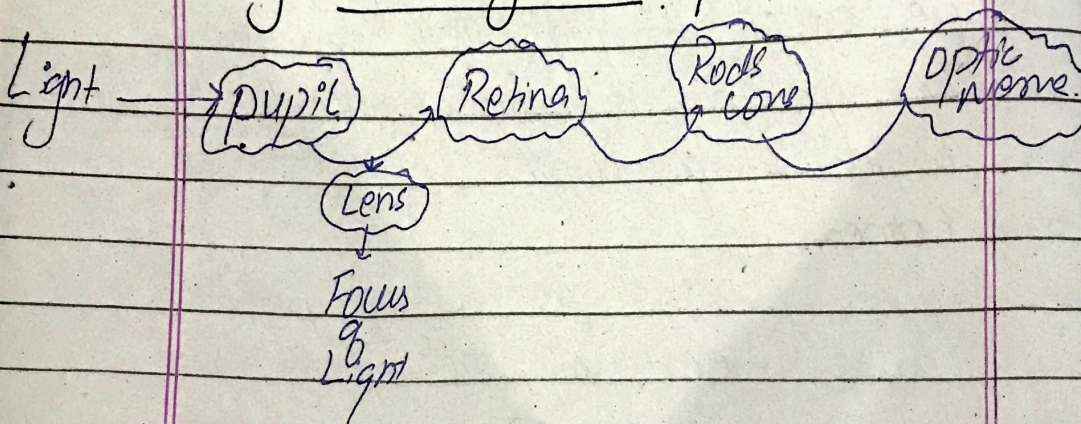 Light
pupil
Retina
Rods
cons
Optic
Nerve.
Lens
Focus
of
Light